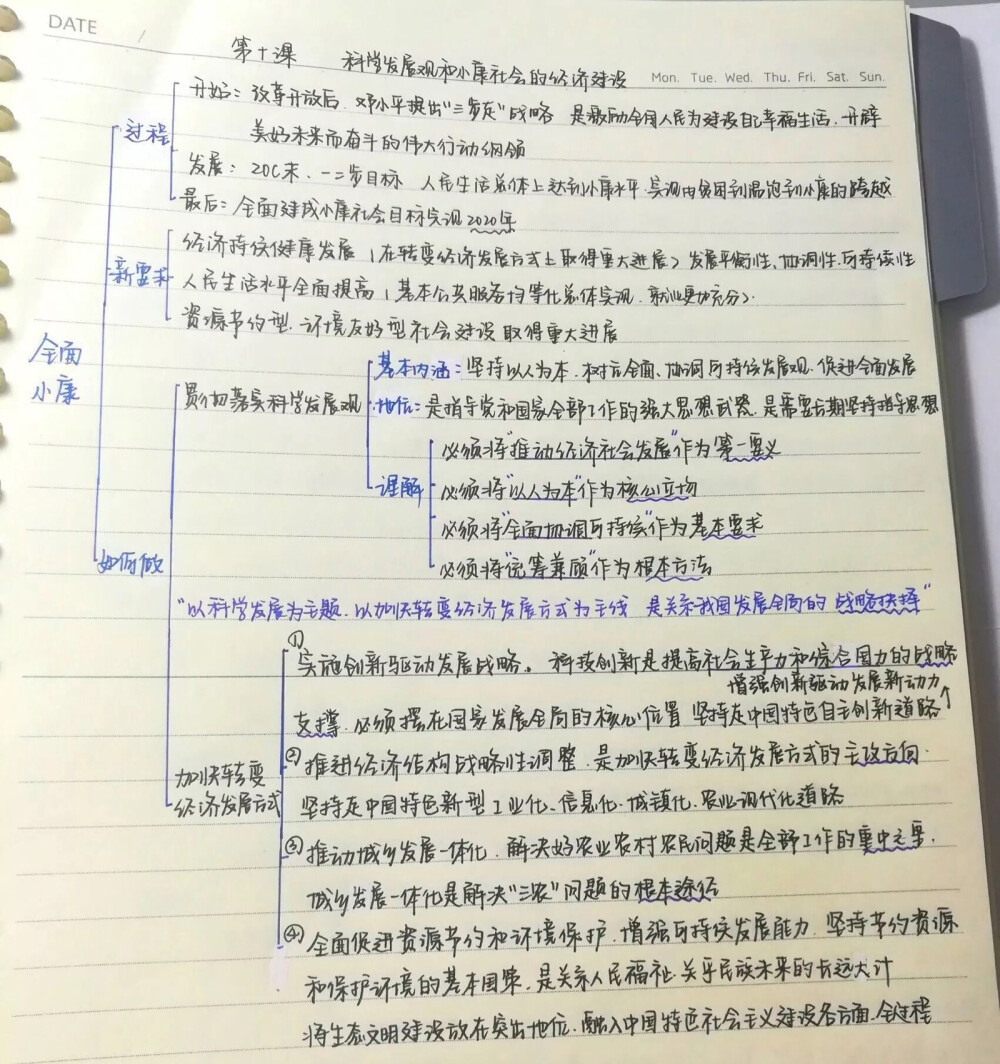 DATE /
第十课 科学发展观和小康社会的经济建设
Mon. Tue. Wed. Thu. Fri. Sat. Sun.
开始：改革开放后，邓小平提出"三步走"战略 是激励全国人民为建设自己幸福生活，开辟
过程
美好未来而奋斗的伟大行动纲领
发展：20C末，一二步目标 人民生活总体上达到小康水平，实现由贫困到温饱到小康的跨越
最后：全面建成小康社会目标实现 2020年
经济持续健康发展（在转变经济发展方式上取得重大进展）发展平衡性、协调性、可持续性
新要求
人民生活水平全面提高（基本公共服务均等化总体实现，就业更加充分）.
资源节约型，环境友好型社会建设 取得重大进展
全面
小康
基本内涵：坚持以人为本，树立全面、协调可持续发展观，促进全面发展
贯彻落实科学发展观
地位：是指导党和国家全部工作的强大思想武器，是需要长期坚持指导思想
必须将"推动经济社会发展"作为第一要义
理解
必须将"以人为本"作为核心立场
必须将"全面协调可持续"作为基本要求
如何做
必须将"统筹兼顾"作为根本方法
"以科学发展为主题，以加快转变经济发展方式为主线 是关系我国发展全局的 战略抉择"
① 实施创新驱动发展战略。科技创新是提高社会生产力和综合国力的战略
增强创新驱动发展新动力
支撑，必须摆在国家发展全局的核心位置 坚持走中国特色自主创新道路
② 推进经济结构战略性调整，是加快转变经济发展方式的主攻方向.
加快转变
经济发展方式
坚持走中国特色新型工业化、信息化、城镇化、农业现代化道路
③ 推动城乡发展一体化，解决好农业农村农民问题是全部工作的重中之重.
城乡发展一体化是解决"三农"问题的根本途径
④ 全面促进资源节约和环境保护，增强可持续发展能力，坚持节约资源
和保护环境的基本国策，是关系人民福祉，关乎民族未来的长远大计
将生态文明建设放在突出地位，融入中国特色社会主义建设各方面，全过程